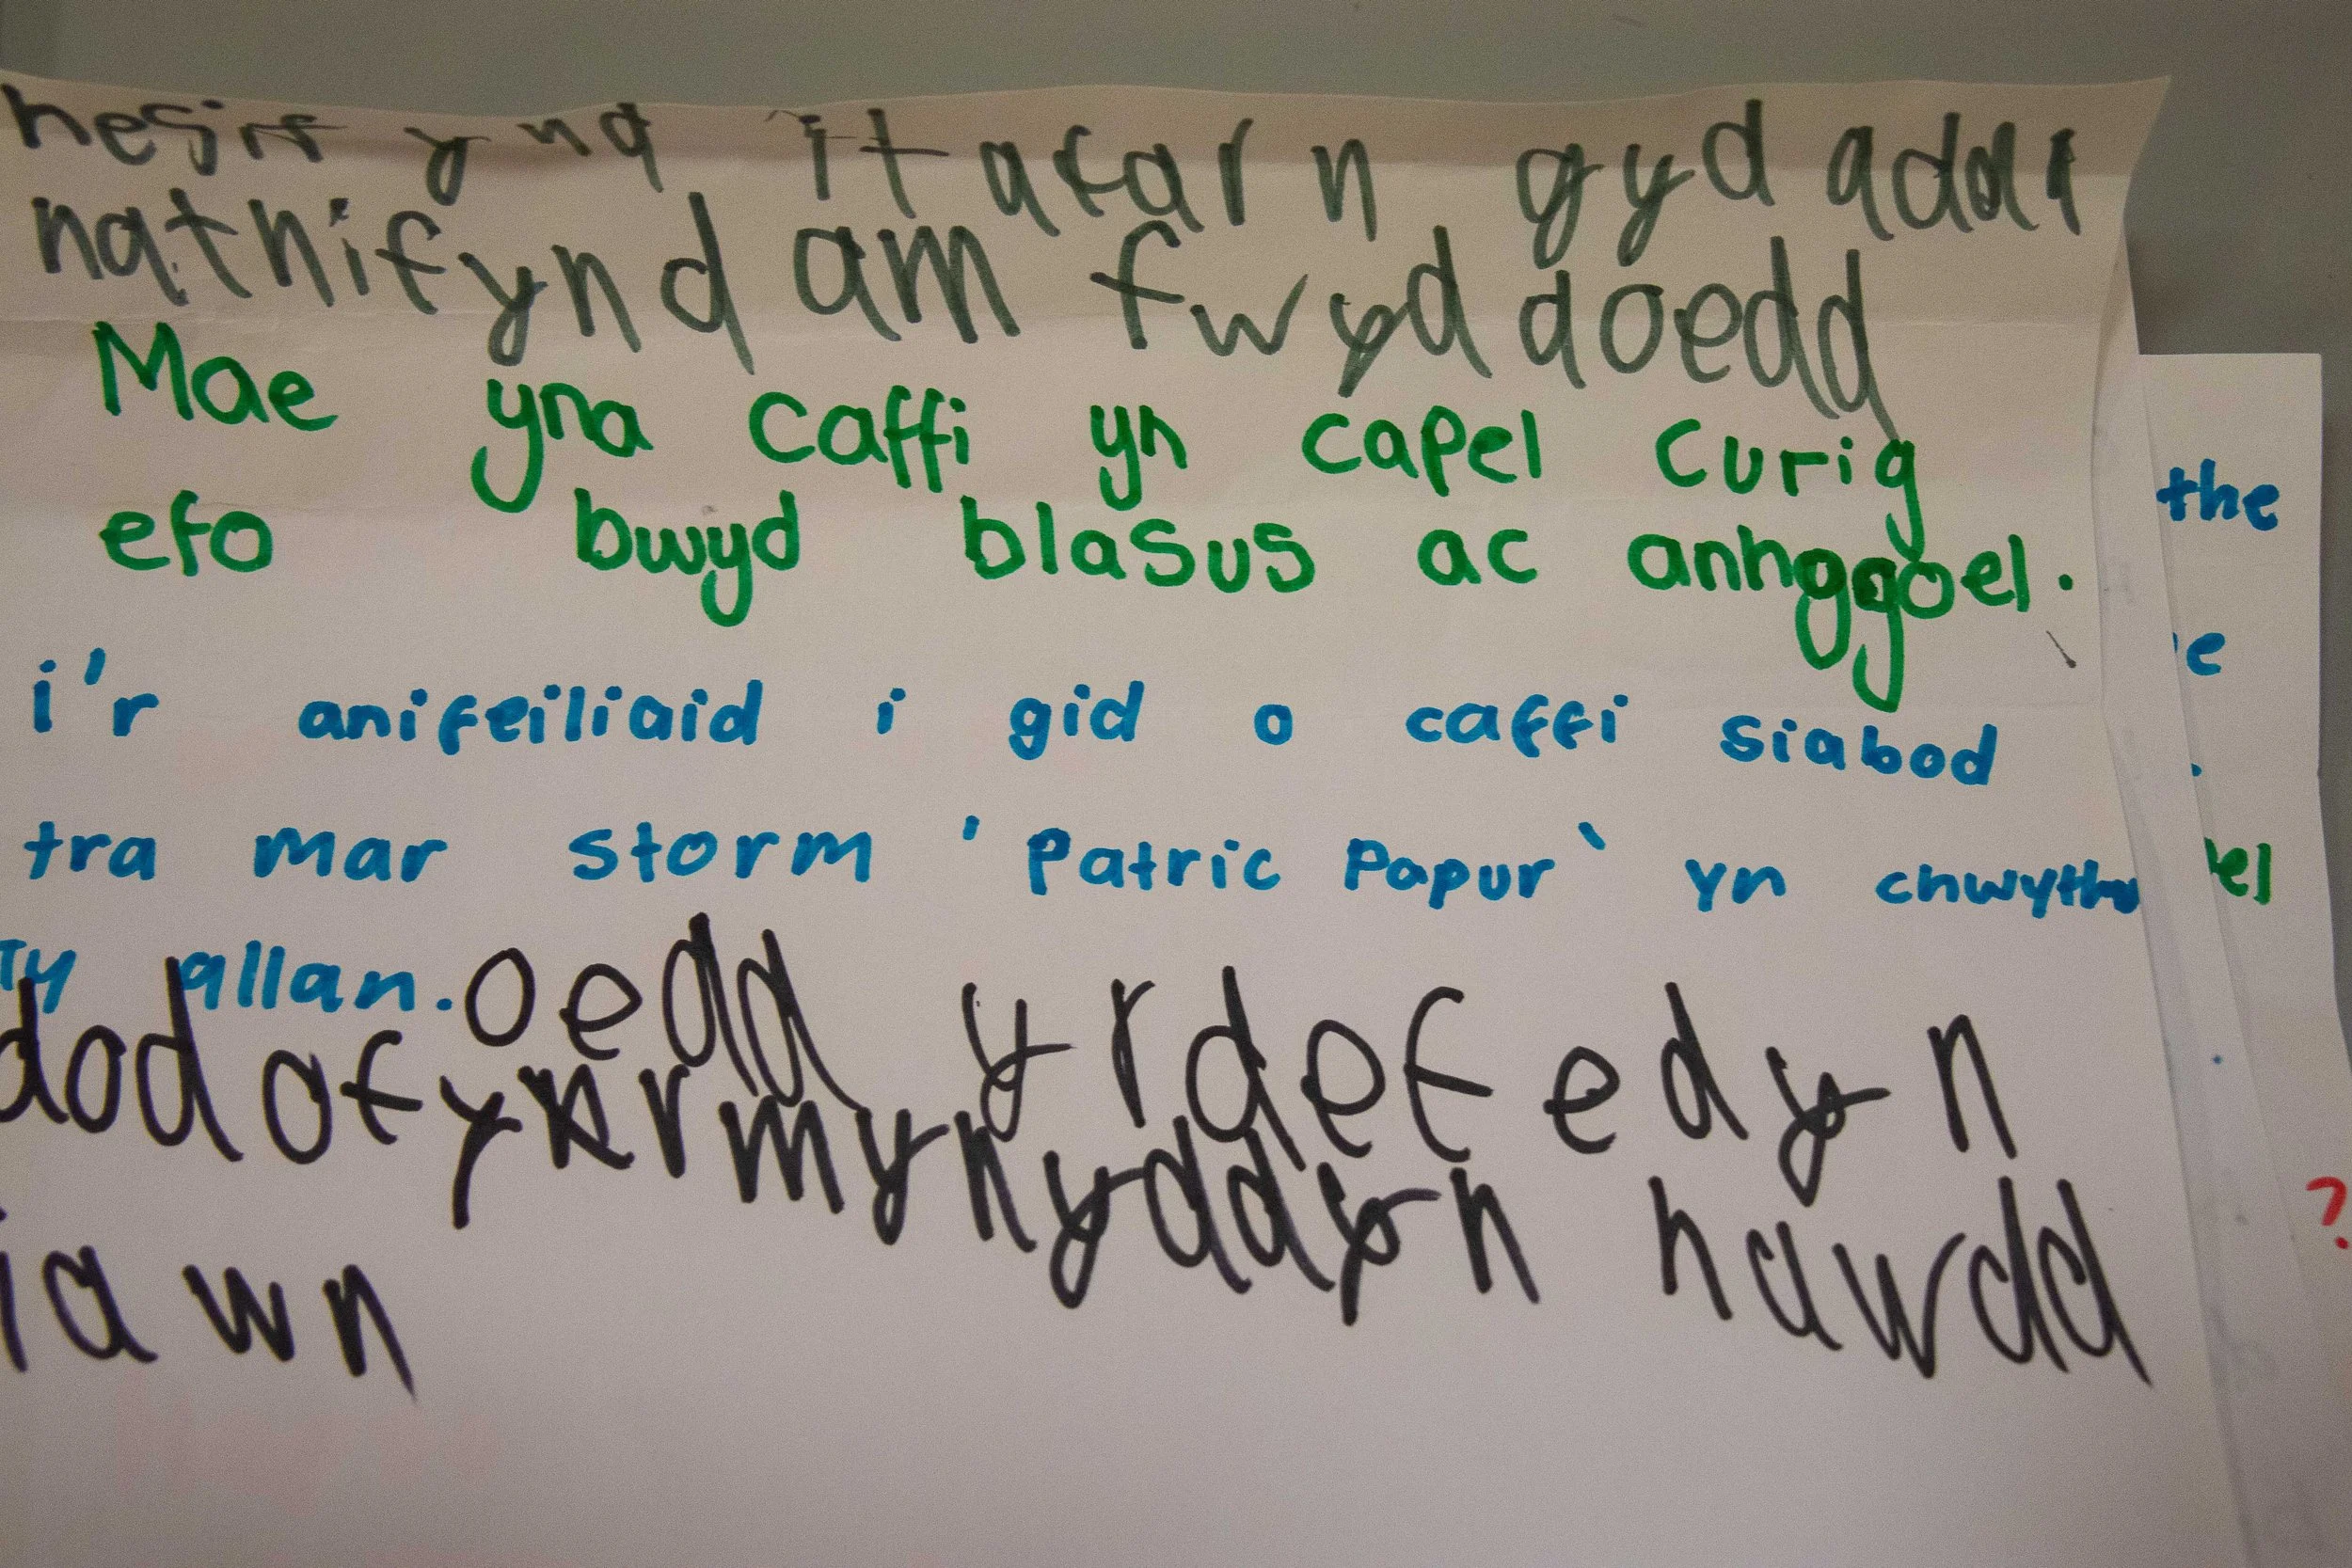 nesit yna it afarn gyd adal
nathnifynd am fwyd doedd
Mae yna caffi yn capel curig
efo bwyd blasus ac anhggoel.
i'r anifeiliaid i gid o caffi siabod
tra mar storm 'Patric Papur' yn chwythu
Ty allan.
oedd yrdefedyn
dod ofyrmynyddyn hawdd
iawn
the
e
.
el
?